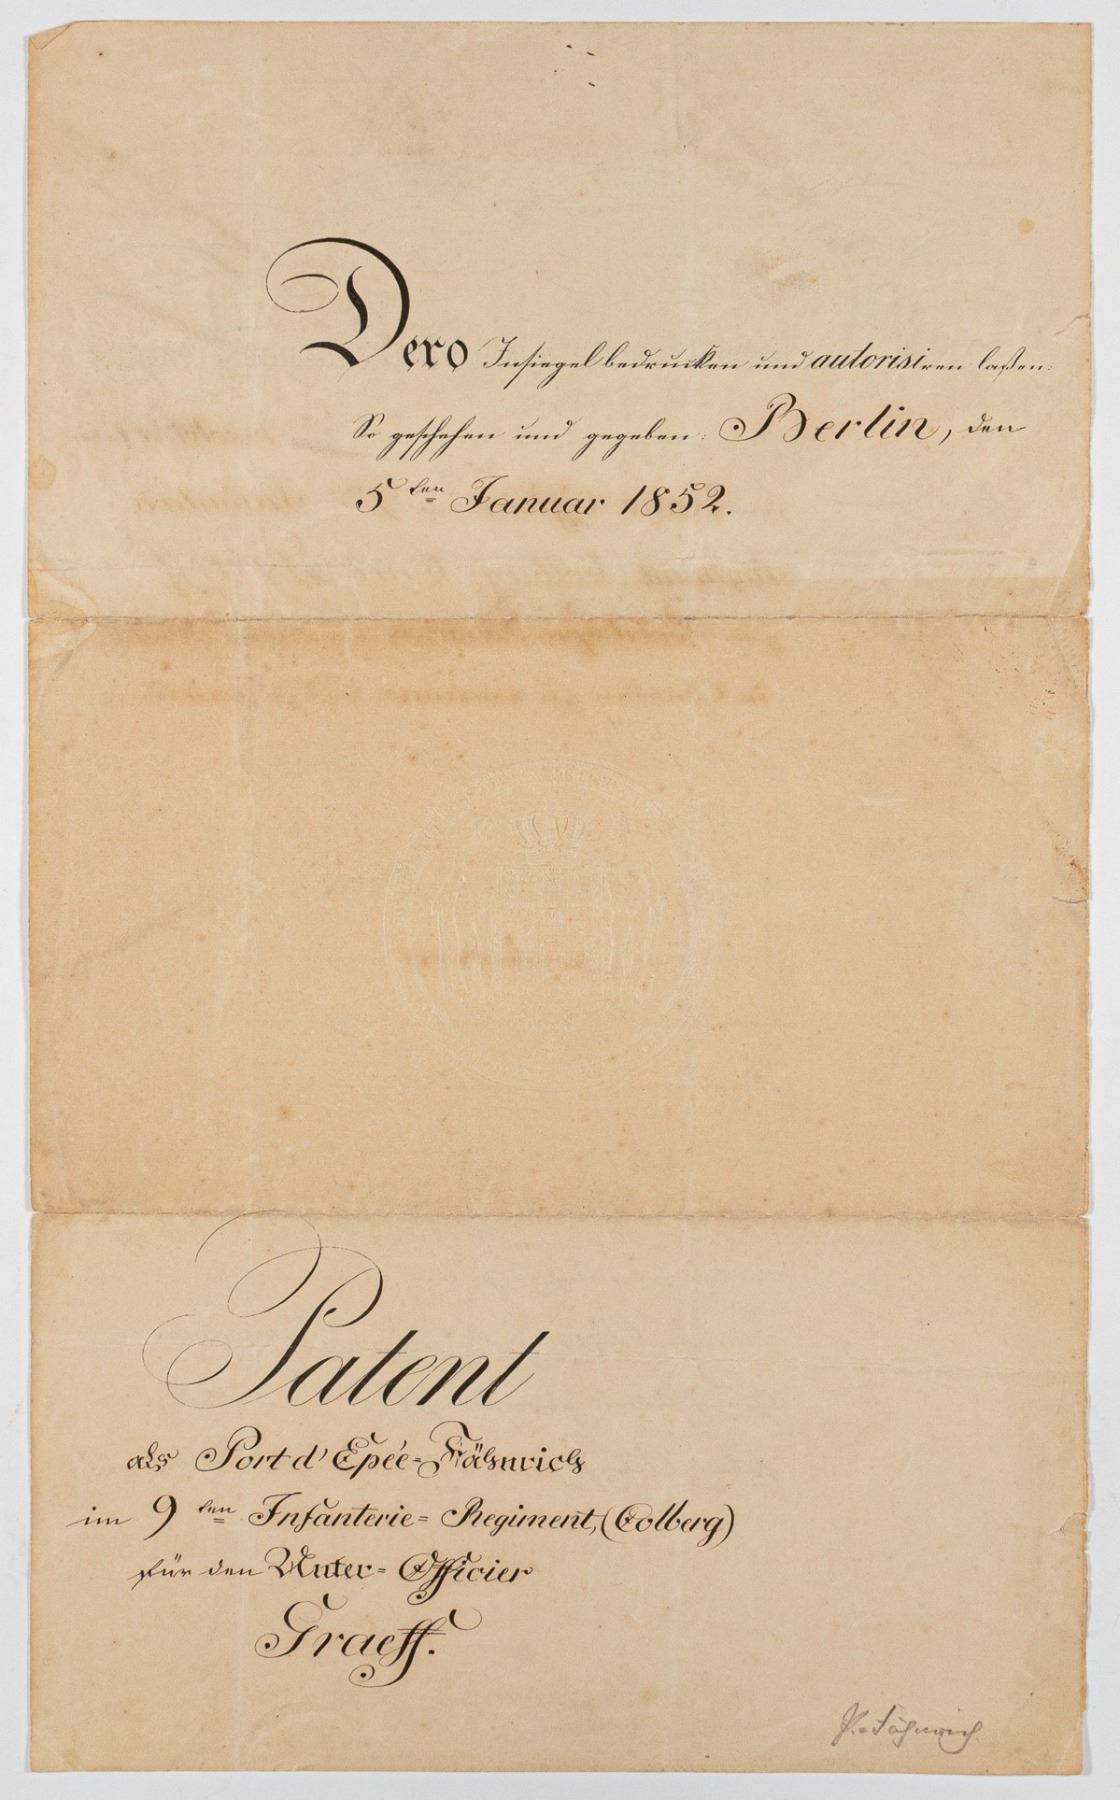 Dero Insiegel bedrucken und autorisiren laßen:
So geschehen und gegeben: Berlin, den
5ten Januar 1852.
Patent
als Port d'Epée-Fähnrich
im 9ten Infanterie-Regiment, (Colberg)
für den Unter-Officier
Graeff.
P.-Fähnrich